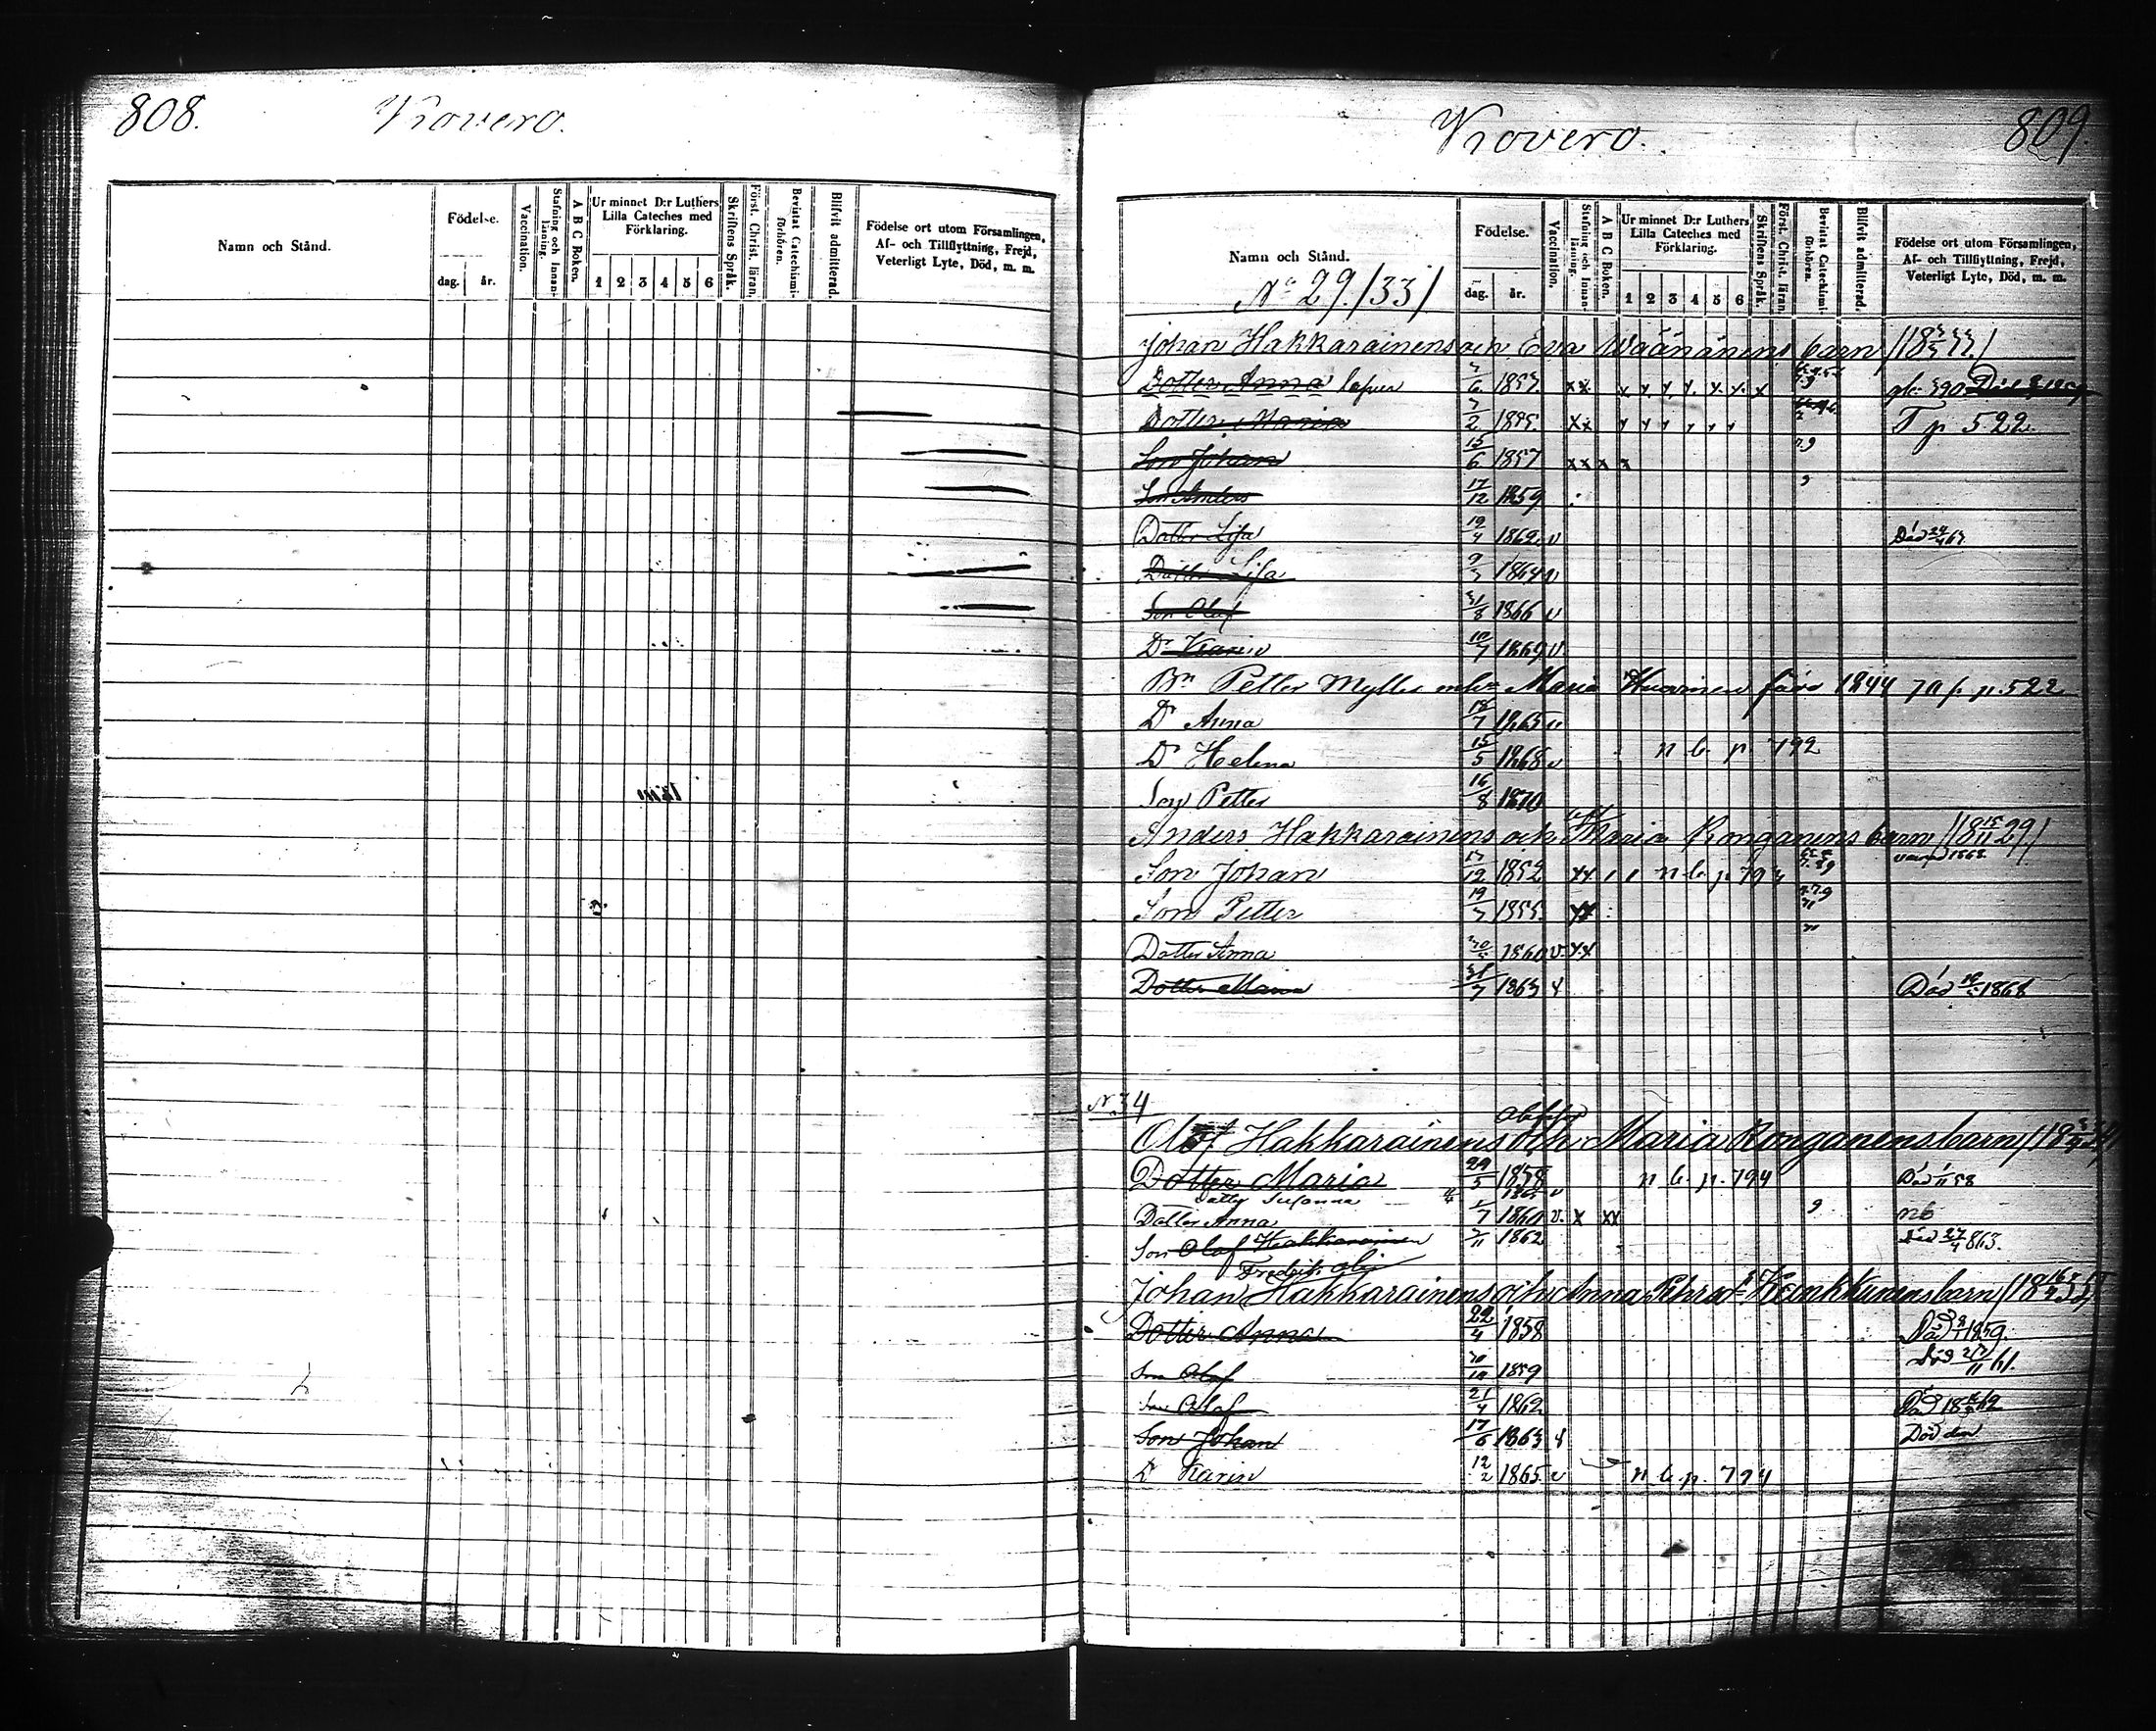 808. Kovero.
Namn och Stånd.
Födelse.
dag. år.
Vaccination.
Stafning och Innanläsning.
A B C Boken.
Ur minnet D:r Luthers Lilla Cateches med Förklaring.
1 2 3 4 5 6
Skriftens Språk.
Först. Christ. läran.
Bevistat Catechismiförhören.
Blifvit admitterad.
Födelse ort utom Församlingen, Af- och Tillflyttning, Frejd, Veterligt Lyte, Död, m. m.
Kovero. 809.
Namn och Stånd.
No 29./33/
Födelse.
dag. år.
Vaccination.
Stafning och Innanläsning.
A B C Boken.
Ur minnet D:r Luthers Lilla Cateches med Förklaring.
1 2 3 4 5 6
Skriftens Språk.
Först. Christ. läran.
Bevistat Catechismiförhören.
Blifvit admitterad.
Födelse ort utom Församlingen, Af- och Tillflyttning, Frejd, Veterligt Lyte, Död, m. m.
Johan Hakkarainens och Eva Wäänänens barn
Dotter Anna 1853. xx
Dotter Maria 7/2 1855. xx T p 522.
Son Johan 15/6 1857 xx x x
Son Anders 17/12 1859
Dotter Lisa 19/4 1862. v Död
Dotter Lisa 9/3 1864 v
Son Olof 31/8 1866 v
Dr Karin 10/7 1869 v
Petter Myller Maria 1844 p. 522
Dr Anna 18/7 1865 v
Dr Helena 15/5 1868 v n b p. 792
Son Petter 16/8 1870
Anders Hakkarainens och Maria Ronganens barn /18 15/11 29/
Son Johan 1852 xx n b p 794
Son Petter 1855. xx
Dotter Anna 1860 v. xx
Dotter Maria 31/7 1863 Död 1868
N. 34
Olof Hakkarainens och Maria Ronganens barn
Dotter Maria 29/5 1858 n b p. 794 Död 58
Dotter Susanna 1865 v
Dotter Anna 1860 v. x xx 9 nb
Son Olof Hakkarainen 1862 Död 27/4 863.
Fredrik
Johan Hakkarainens och Anna barn
Dotter Anna 22/4 1858 Död 1859.
Son Olof 1859 Död 61.
Son Olof 21/4 1862 Död
Son Johan 17/6 1863 Död den
D Karin 12/2 1865. v n b. p. 794